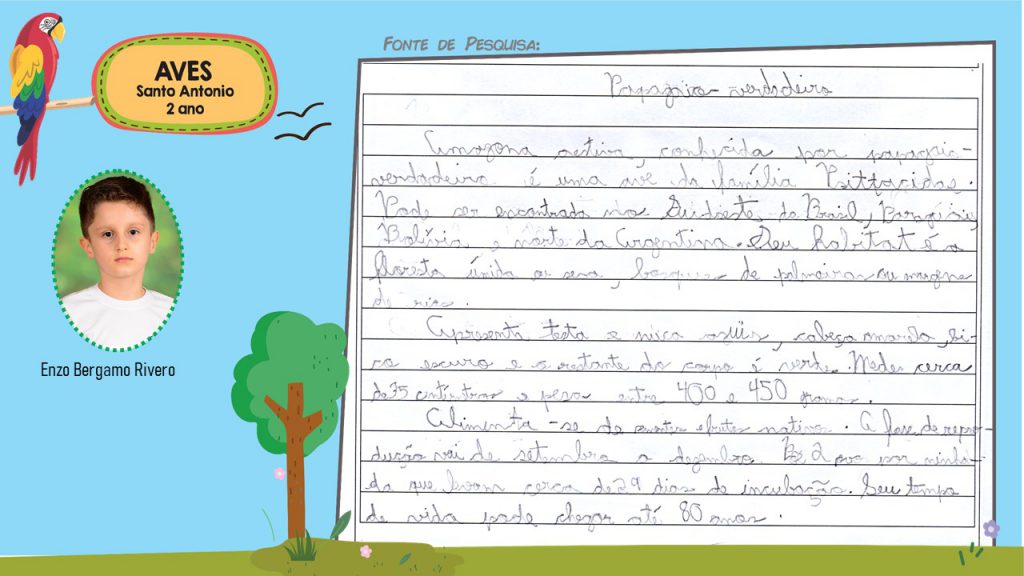 AVES
Santo Antonio
2 ano
Enzo Bergamo Rivero
FONTE DE PESQUISA:
Papagaio-verdadeiro
Amazona aestiva, conhecida por papagaio-
verdadeiro é uma ave da família Psittacidae.
Pode ser encontrado no Sudoeste do Brasil, Paraguai,
Bolívia e norte da Argentina. Seu habitat é a
floresta úmida ou seca, bosques de palmeiras ou margens
de rios.
Apresenta testa e nuca azuis, cabeça amarela, bi-
co escuro e o restante do corpo é verde. Medes cerca
de 35 centímetros e pesa entre 400 e 450 gramas.
Alimenta-se de sementes e frutos nativos. A fase de repro-
dução vai de setembro a dezembro. 2 ovo por ninha-
da que levam cerca de 29 dias de incubação. Seu tempo
de vida pode chegar até 80 anos.